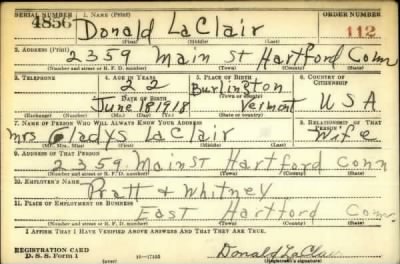 SERIAL NUMBER 1. NAME (Print) ORDER NUMBER
4856 Donald LaClair 112
(First) (Middle) (Last)
2. ADDRESS (Print)
2359 Main St Hartford Conn
(Number and street or R. F. D. number) (Town) (County) (State)
3. TELEPHONE 4. AGE IN YEARS 5. PLACE OF BIRTH 6. COUNTRY OF CITIZENSHIP
22 Burlington
DATE OF BIRTH (Town or county)
June 18 1918 Vermont U S A
(Exchange) (Number) (Mo.) (Day) (Yr.) (State or country)
7. NAME OF PERSON WHO WILL ALWAYS KNOW YOUR ADDRESS 8. RELATIONSHIP OF THAT PERSON
Mrs Gladys LaClair Wife
(Mr., Mrs., Miss) (First) (Middle) (Last)
9. ADDRESS OF THAT PERSON
2359 Main St Hartford Conn
(Number and street or R. F. D. number) (Town) (County) (State)
10. EMPLOYER'S NAME
Pratt + Whitney
11. PLACE OF EMPLOYMENT OR BUSINESS
East Hartford Conn
(Number and street or R. F. D. number) (Town) (County) (State)
I AFFIRM THAT I HAVE VERIFIED ABOVE ANSWERS AND THAT THEY ARE TRUE.
REGISTRATION CARD
D. S. S. Form 1 Donald LaClair
(Registrant's signature)